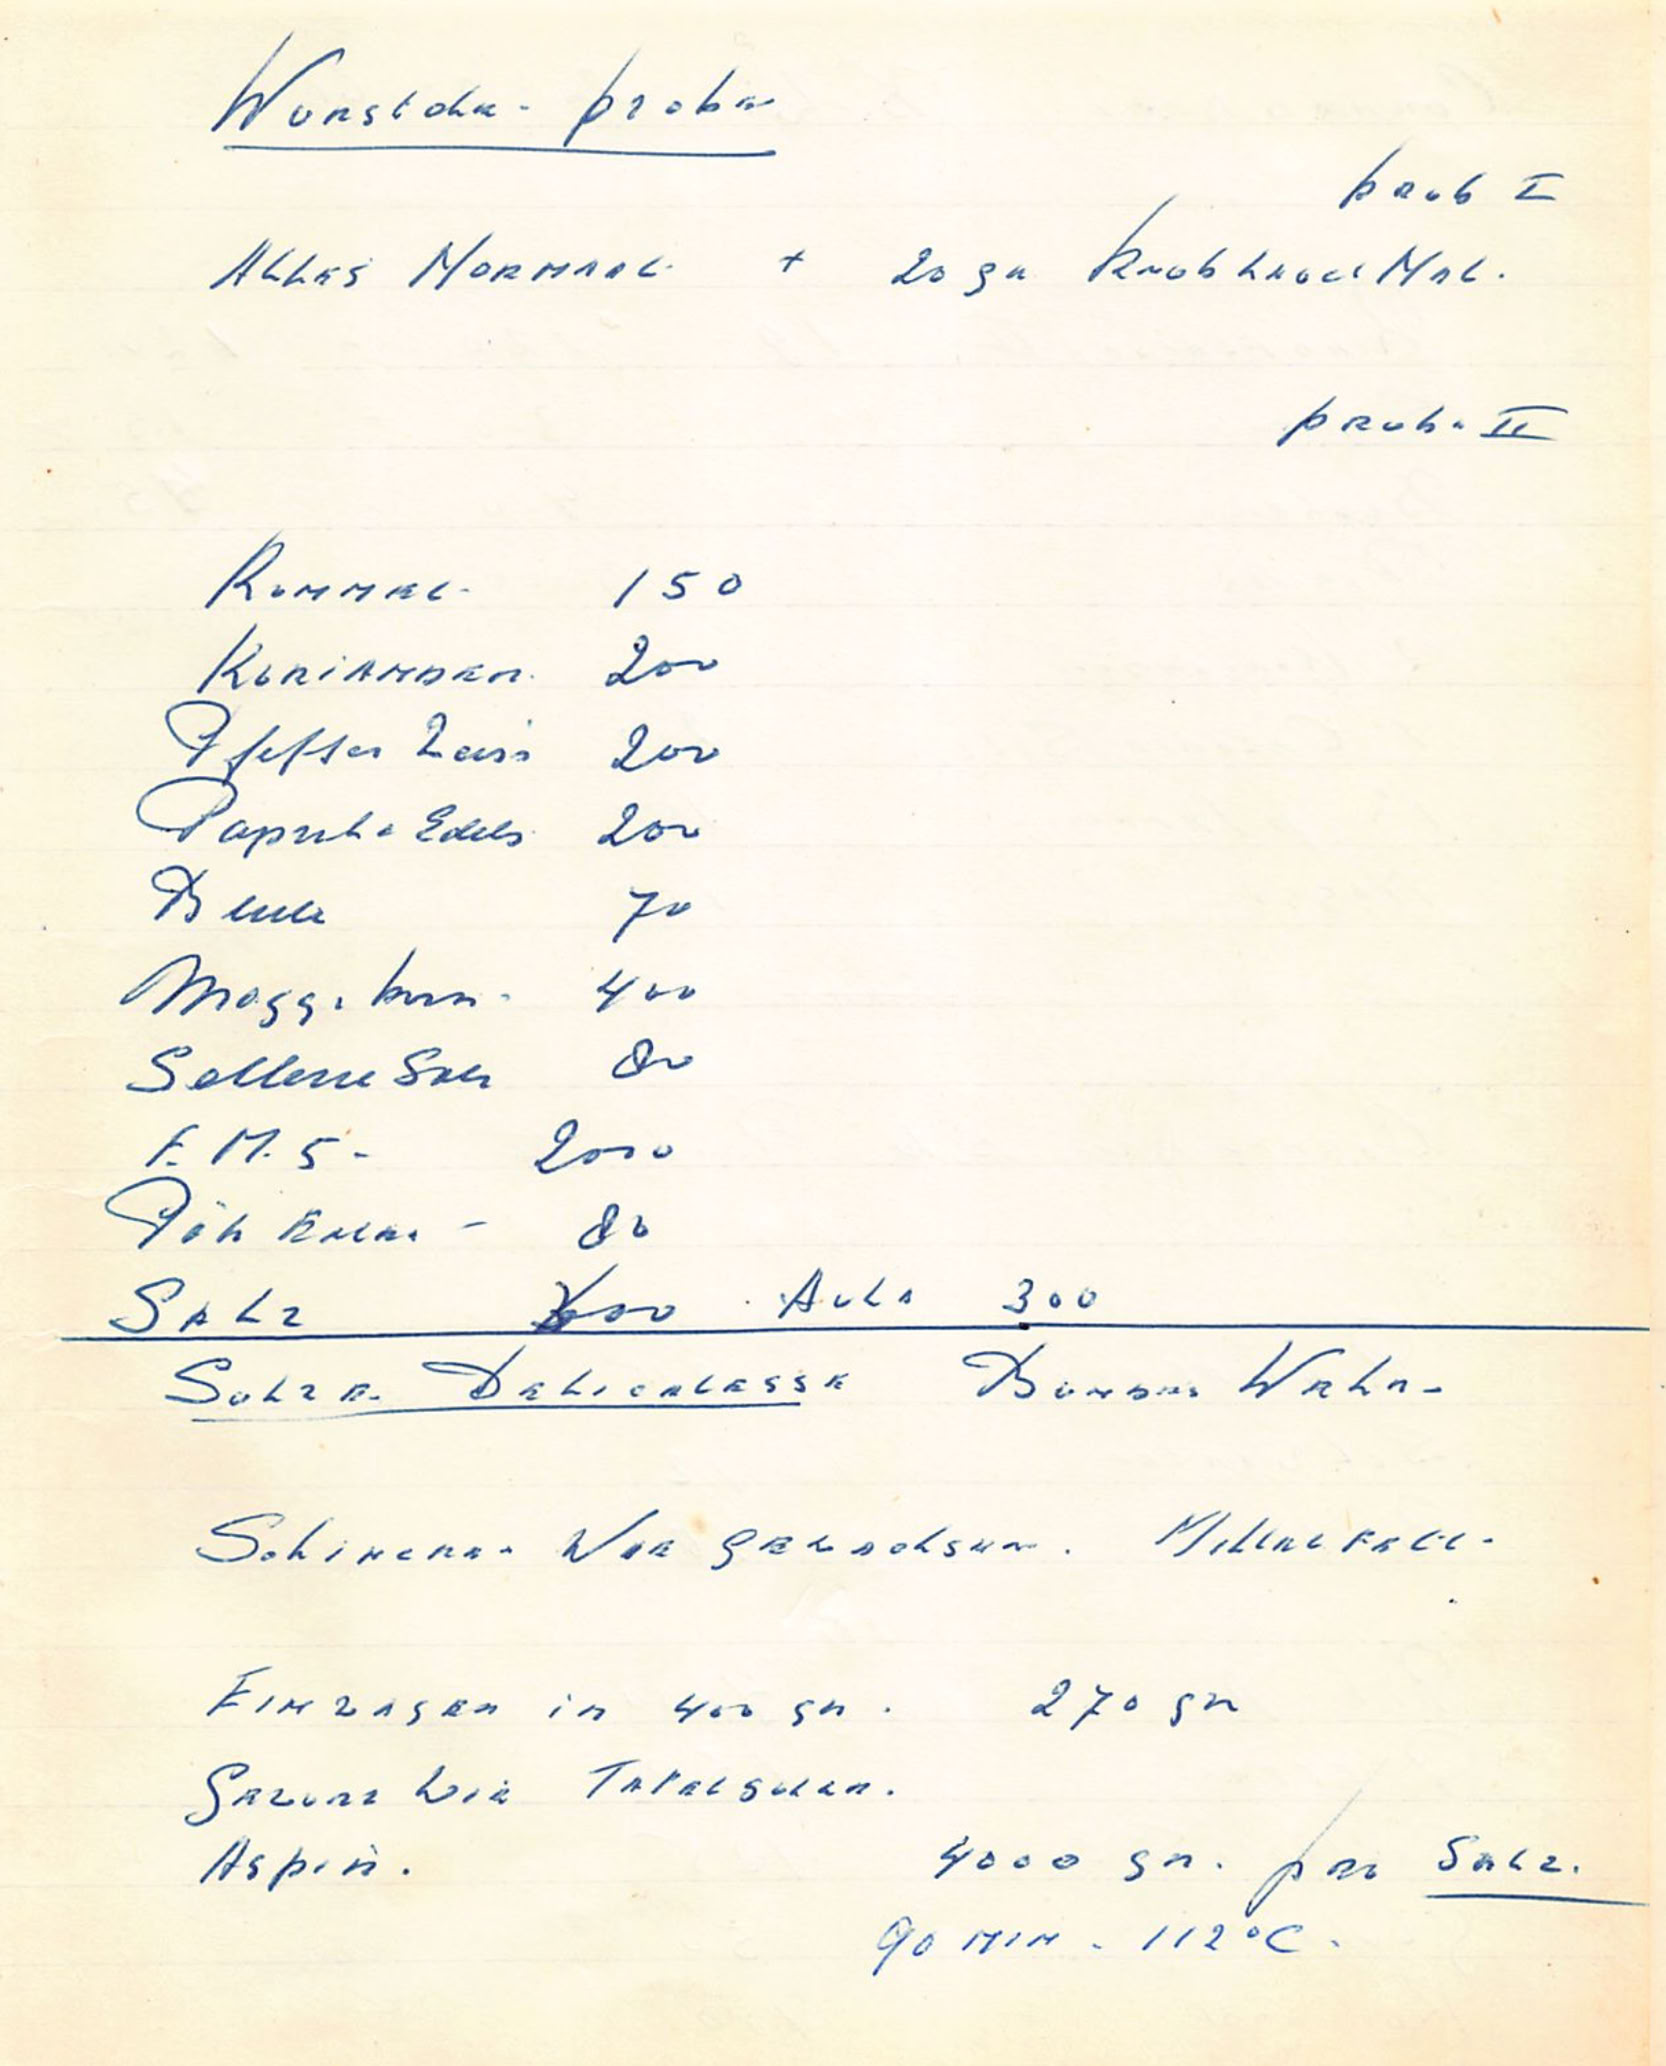 Würstchen - probe
prob I
Alles Normal + 20 gr Knoblauch Mal.
probe II
Kümmel 150
Koriander 200
Pfeffer Weiss 200
Paprika Edels 200
70
Maggi 400
Sellerie Salz 80
F. M. S - 2000
Pök - 80
Salz 600 300
Sülze Delicatesse Wahn-
Schincken Wie Gewachsen. Mittelfett.
Einwagen in 400 gr. 270 gr
Gewürz Wie Tafelsülze.
Aspik.
4000 gr. pro Salz.
90 Min - 112°C.